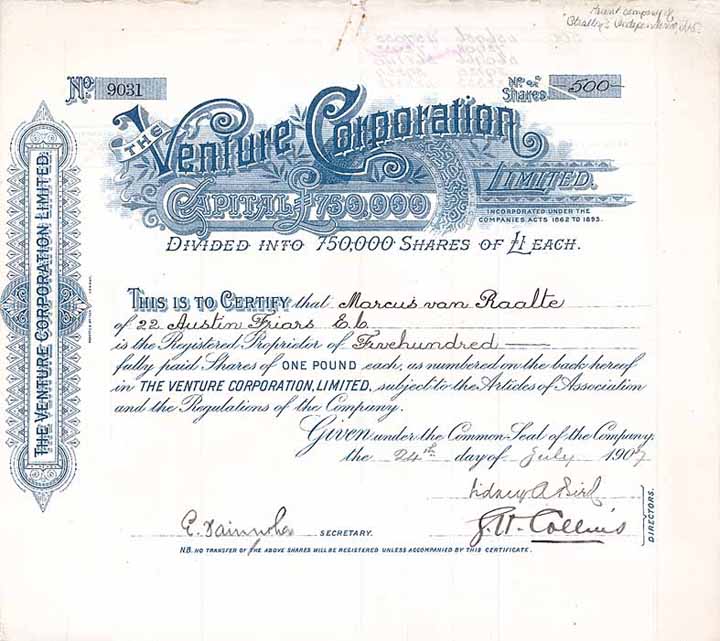 Parent company of
Stratton's Independence, Ltd.
No. 9031
No. of Shares 500
THE Venture Corporation
LIMITED.
CAPITAL £750,000
INCORPORATED UNDER THE
COMPANIES ACTS 1862 TO 1893.
DIVIDED INTO 750,000 SHARES OF £1 EACH.
THE VENTURE CORPORATION LIMITED.
THIS IS TO CERTIFY that Marcus van Raalte
of 22 Austin Friars E.C.
is the Registered Proprietor of Fivehundred
fully paid Shares of ONE POUND each, as numbered on the back hereof
in THE VENTURE CORPORATION, LIMITED, subject to the Articles of Association
and the Regulations of the Company.
Given under the Common Seal of the Company
the 24th day of July 1907
Sidney A Bird
J.W. Collins
DIRECTORS.
E. SECRETARY.
N.B. NO TRANSFER OF THE ABOVE SHARES WILL BE REGISTERED UNLESS ACCOMPANIED BY THIS CERTIFICATE.